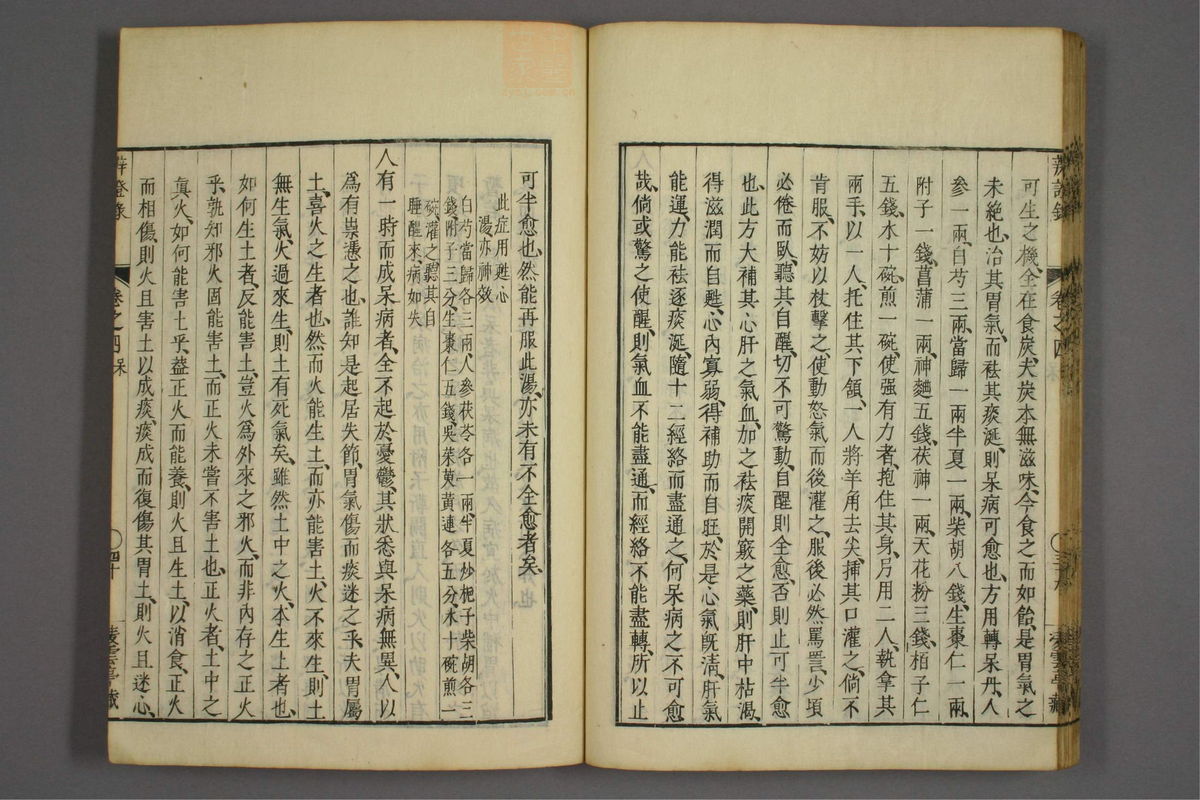 可生之機、全在食炭、夫炭本無滋味、今食之而如飴、是胃氣之
未絶也、治其胃氣、而祛其痰涎、則呆病可愈也、方用轉呆丹、人
參一兩、白芍三兩、當歸一兩、半夏一兩、柴胡八錢、生棗仁一兩、
附子一錢、菖蒲一兩、神麯五錢、茯神一兩、天花粉三錢、栢子仁
五錢、水十碗、煎一碗、使強有力者、抱住其身、另用二人、執拿其
兩手、以一人、托住其下頷、一人將羊角去尖、挿其口灌之、倘不
肯服、不妨以杖擊之、使動怒氣而後灌之、服後必然罵詈、少頃
必倦而臥、聽其自醒、切不可驚動、自醒則全愈、否則止可半愈
也、此方大補其心肝之氣血、加之祛痰開竅之藥、則肝中枯渴、
得滋潤而自甦、心內寡弱、得補助而自旺、於是心氣既清、肝氣
能運、力能祛逐痰涎、隨十二經絡而盡通之、何呆病之不可愈
哉、倘或驚之使醒、則氣血不能盡通、而經絡不能盡轉、所以止
卷之四
可半愈也、然能再服此湯、亦未有不全愈者矣、
此症用甦心
湯亦神效
白芍當歸各三兩人參茯苓各一兩半夏炒梔子柴胡各三
錢附子三分、生棗仁五錢、吳茱萸黃連各五分、水十碗煎一
碗、灌之、聽其自
睡醒來、病如失
人有一時而成呆病者、全不起於憂鬱、其狀悉與呆病無異、人以
爲有祟憑之也、誰知是起居失節、胃氣傷而痰迷之乎、夫胃屬
土、喜火之生者也、然而火能生土、而亦能害土、火不來生、則土
無生氣、火過來生、則土有死氣矣、雖然土中之火、本生土者也、
如何生土者、反能害土、豈火爲外來之邪火、而非內存之正火
乎、孰知邪火固能害土、而正火未嘗不害土也、正火者、土中之
眞火、如何能害土乎、蓋正火而能養、則火且生土、以消食、正火
而相傷、則火且害土以成痰、痰成而復傷其胃土、則火且迷心、
辨證錄 卷之四 呆 四十